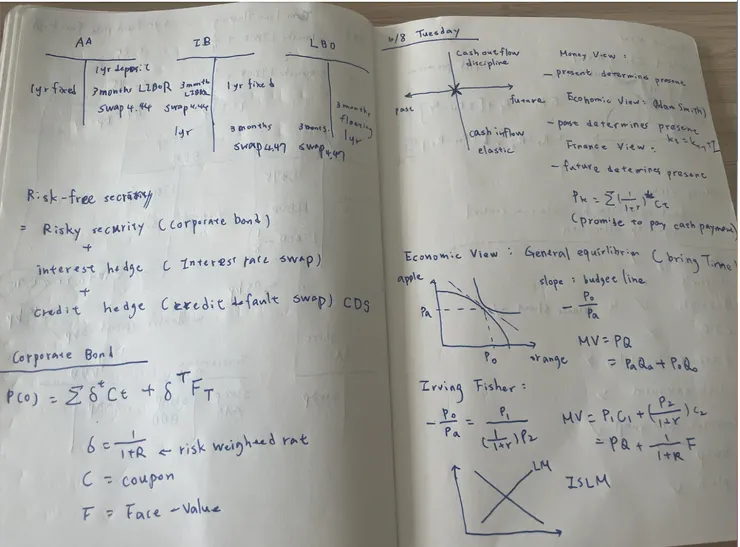 AA
IB
LBO
1yr deposit
1yr fixed
3months LIBOR
swap 4.44
3month
LIBOR
swap 4.44
1yr fixed
1yr
3months
swap 4.47
3months
floating
1yr
3months
swap 4.47
Risk-free security
= Risky security (Corporate bond)
+
interest hedge (Interest rate swap)
+
credit hedge (credit default swap) CDS
Corporate Bond
P(0) = Σ δ^t Ct + δ^T F_T
δ = 1/(1+R) ← risk weigheed rat
C = coupon
F = Face-Value
6/8 Tuesday
Cash outflow
discipline
past
future
cash inflow
elastic
Money View:
- present determins present
Economic View: (Adam Smith)
- past determines present
Finance View:
- future determines present
(promise to pay cash payment)
Economic View: General equirlibrim (bring Time)
apple
Pa
Po
orange
slope: budget line
- Po/Pa
MV = PQ
= PaQa + PoQo
Irving Fisher:
- Po/Pa = P1/((1/(1+r))P2)
MV = P1C1 + (P2/(1+r))C2
= PQ + 1/(1+R) F
LM
ISLM